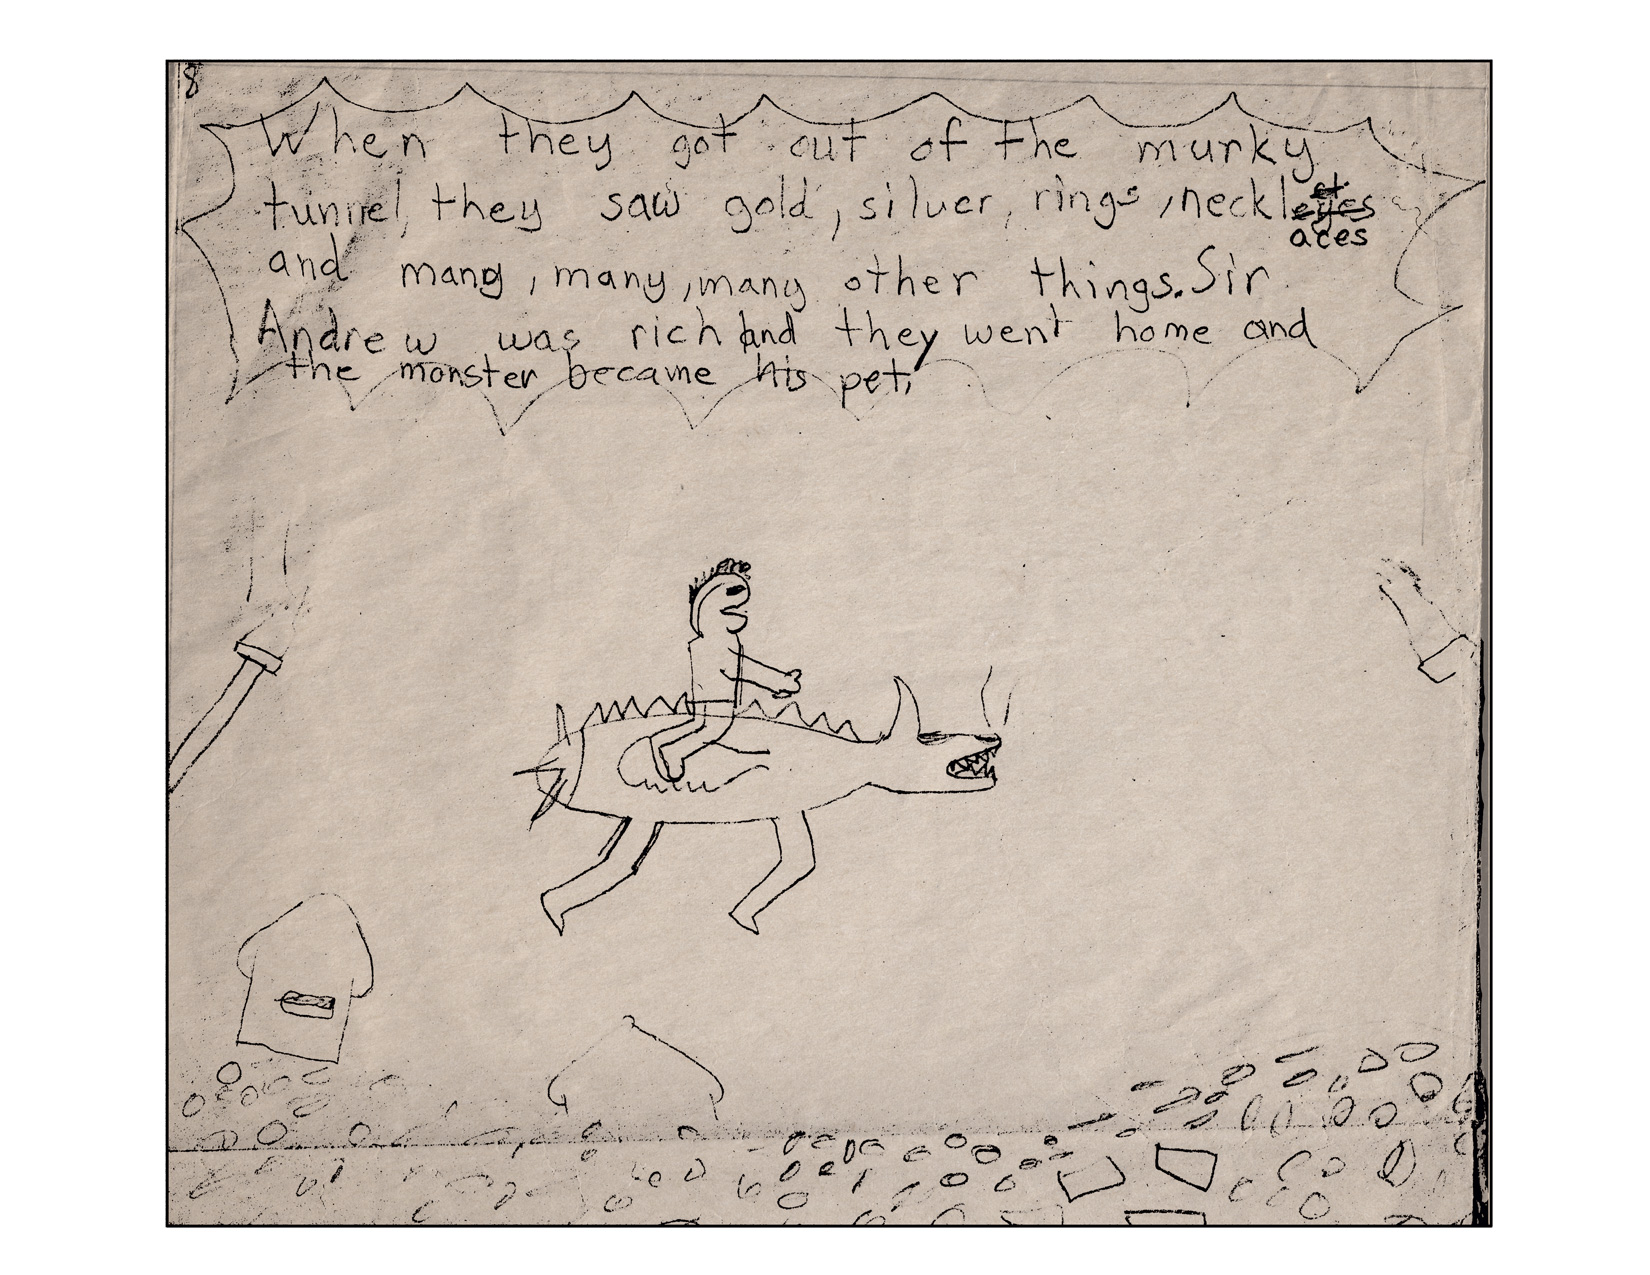 8
When they got out of the murky
tunnel, they saw gold, silver, rings, neckleyes
aces
and many, many, many other things. Sir
Andrew was rich and they went home and
the monster became his pet.